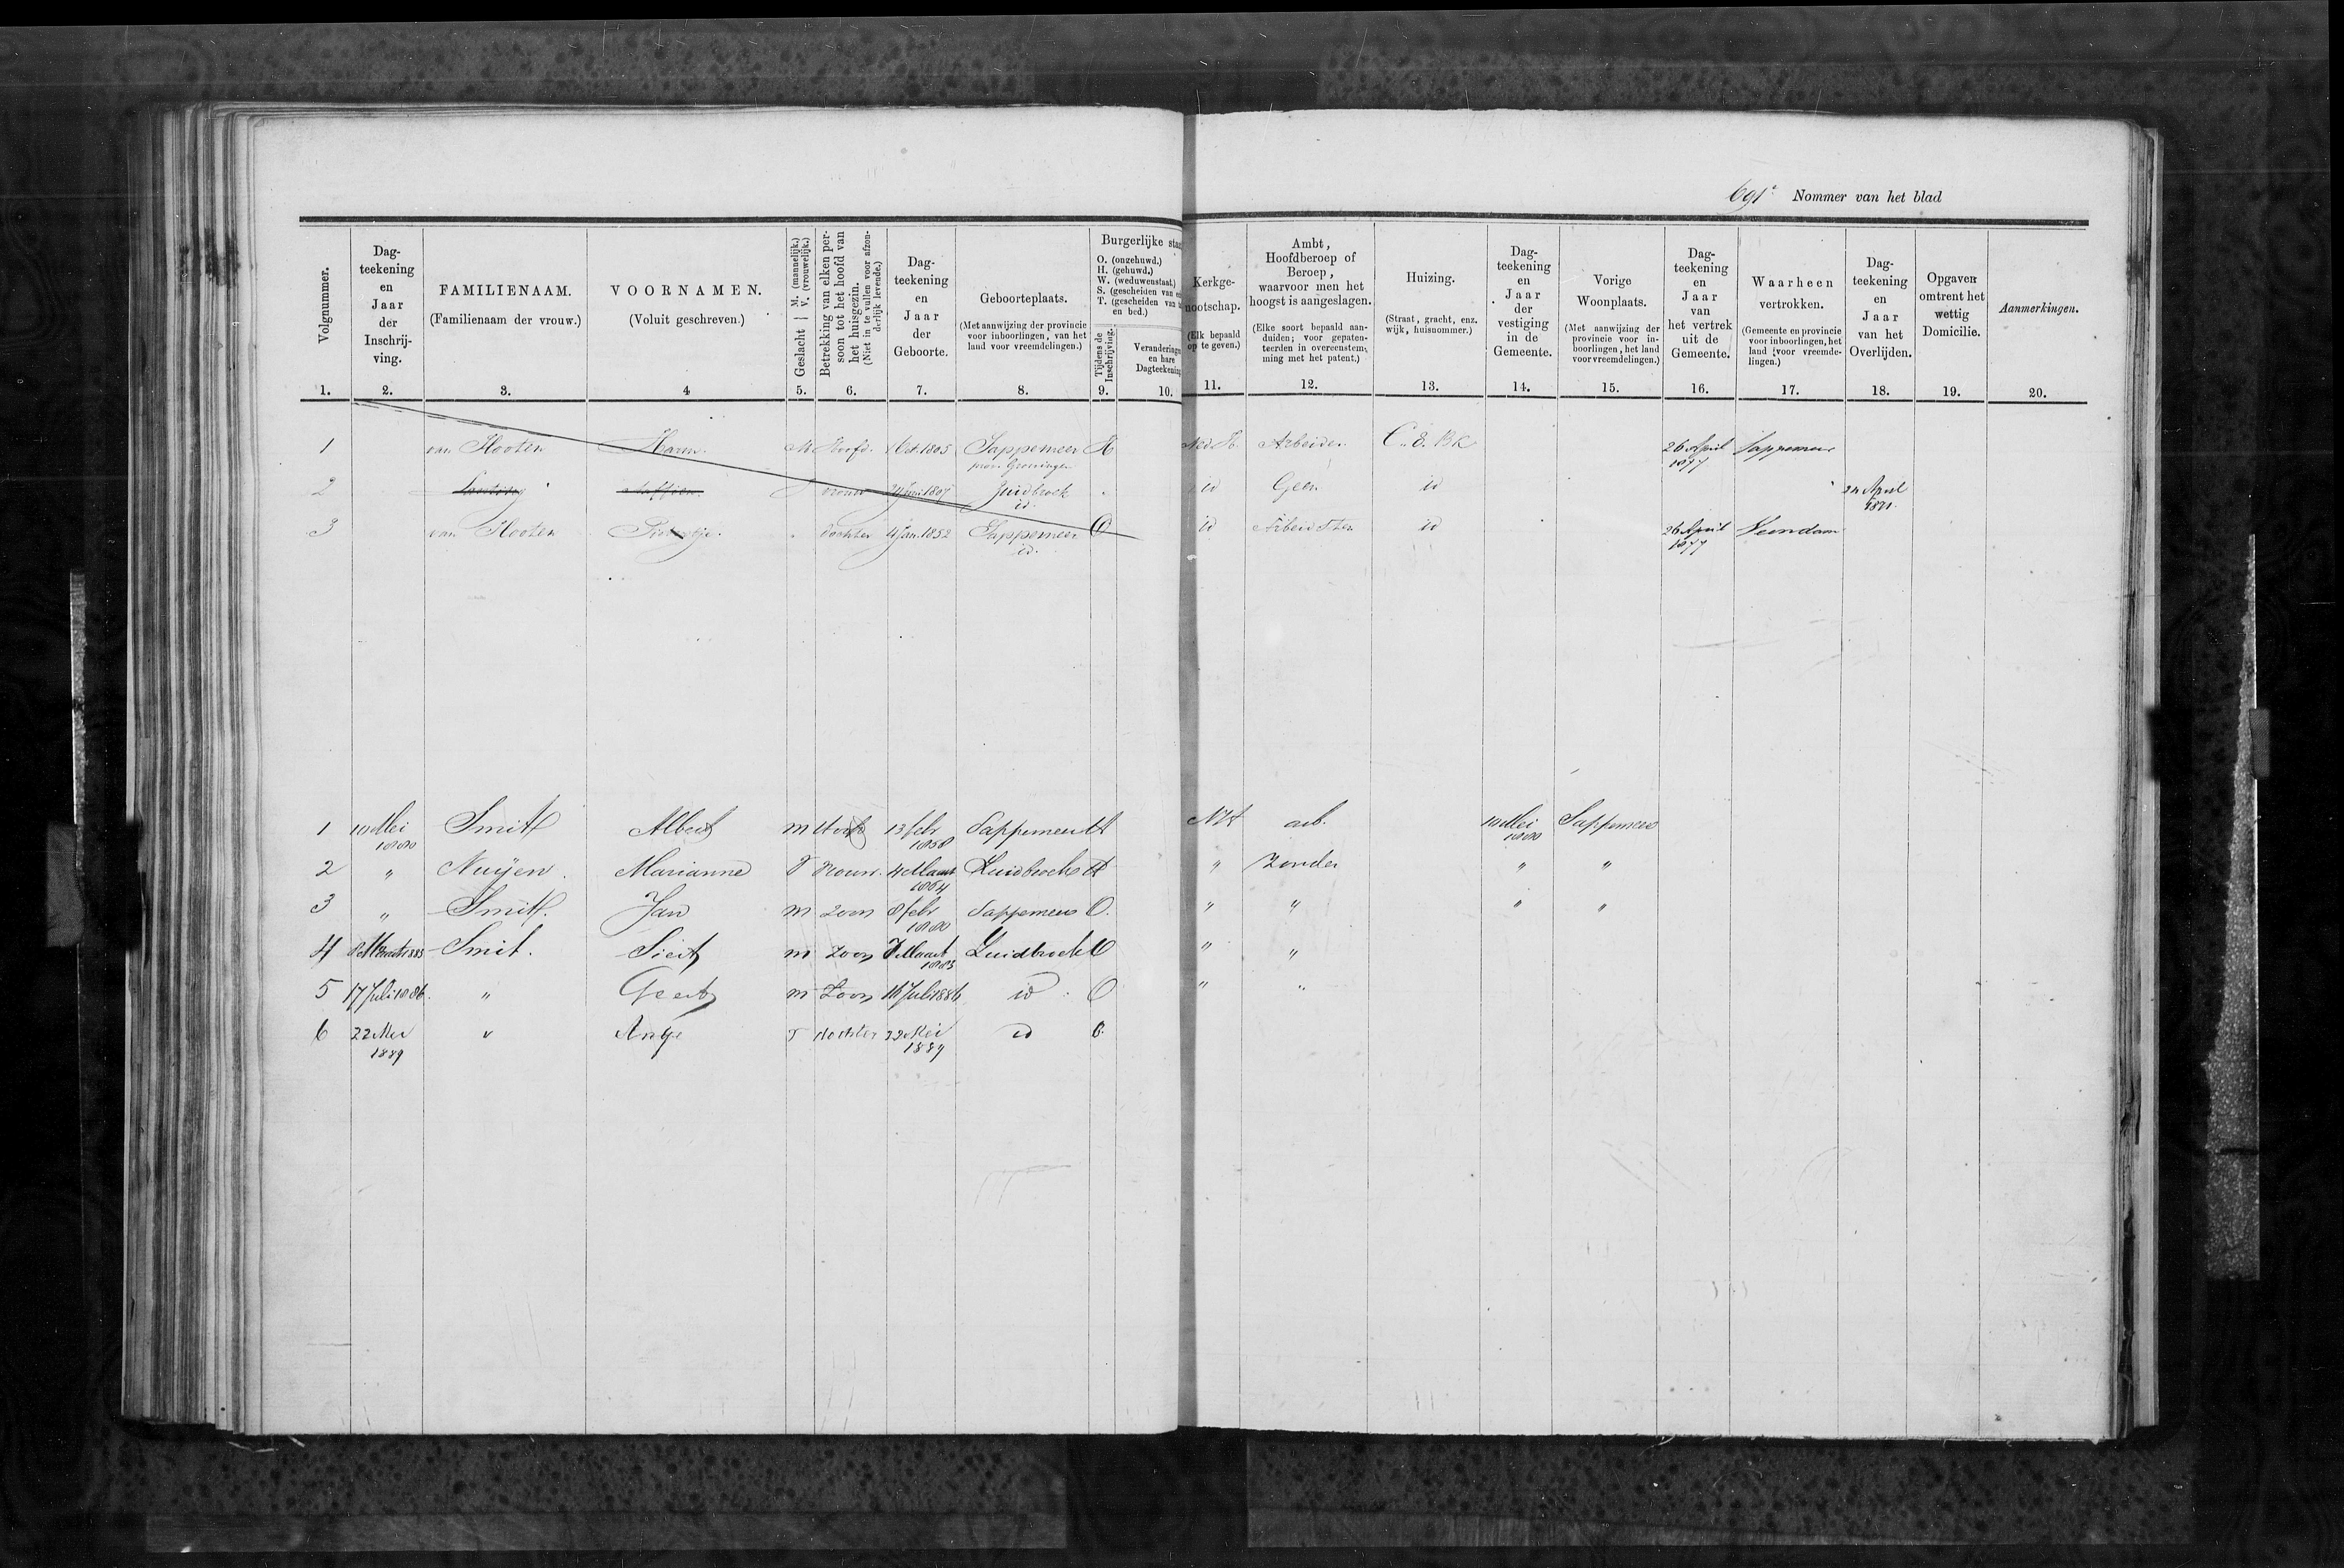 691a Nommer van het blad
Volgnummer.
1.
Dag-
teekening
en
Jaar
der
Inschrij-
ving.
2.
FAMILIENAAM.
(Familienaam der vrouw.)
3.
VOORNAMEN.
(Voluit geschreven.)
4
Geslacht { M. (mannelijk.) V. (vrouwelijk.)
5.
Betrekking van elken per-
soon tot het hoofd van
het huisgezin.
(Niet in te vullen voor afzon-
derlijk levende.)
6.
Dag-
teekening
en
Jaar
der
Geboorte.
7.
Geboorteplaats.
(Met aanwijzing der provincie
voor inboorlingen, van het
land voor vreemdelingen.)
8.
Burgerlijke staa
O. (ongehuwd.)
H. (gehuwd.)
W. (weduwenstaat.)
S. (gescheiden van
T. (gescheiden van
en bed.)
Tijdens de
Inschrijving.
9.
Veranderinge
en hare
Dagteekening
10.
Kerkge-
nootschap.
(Elk bepaald
op te geven.)
11.
Ambt,
Hoofdberoep of
Beroep,
waarvoor men het
hoogst is aangeslagen.
(Elke soort bepaald aan-
duiden; voor gepaten-
teerden in overeenstem-
ming met het patent.)
12.
Huizing.
(Straat, gracht, enz.
wijk, huisnommer.)
13.
Dag-
teekening
en
Jaar
der
vestiging
in de
Gemeente.
14.
Vorige
Woonplaats.
(Met aanwijzing der
provincie voor in-
boorlingen, het land
voor vreemdelingen.)
15.
Dag-
teekening
en
Jaar
van
het vertrek
uit de
Gemeente.
16.
Waarheen
vertrokken.
(Gemeente en provincie
voor inboorlingen, het
land voor vreemde-
lingen.)
17.
Dag-
teekening
en
Jaar
van het
Overlijden.
18.
Opgaven
omtrent het
wettig
Domicilie.
19.
Aanmerkingen.
20.
1 van Hooten Harm. M Hoofd. 1 Oct. 1805 Sappemeer H Ned H. Arbeider C. 8. 26 April Sappemeer
prov. Groningen 1877
2 vrouw 1807 Zuidbroek " id Geen id 24 April
id. 1871.
3 van Hooten " dochter 4 Jan. 1852 Sappemeer O id Arbeidster id 26 April Veendam
id. 1877
1 10 Mei Smit Albert m Hoofd 13 febr Sappemeer H NH arb. 10 Mei Sappemeer
1880 1858 1880
2 " Nuijen. Marianne V Vrouw. 4 Maart Zuidbroek H " Zonder " "
3 " Smit. Jan m Zoon 8 febr Sappemeer O. " " " "
1880
4 8 Maart 1883 Smit. Siert m Zoon 7 Maart Zuidbroek O " "
1883
5 17 Juli 1886. " Geert m Zoon 16 Juli 1886 id. O " "
6 22 Mei " Antje V dochter 22 Mei id O.
1889 1889